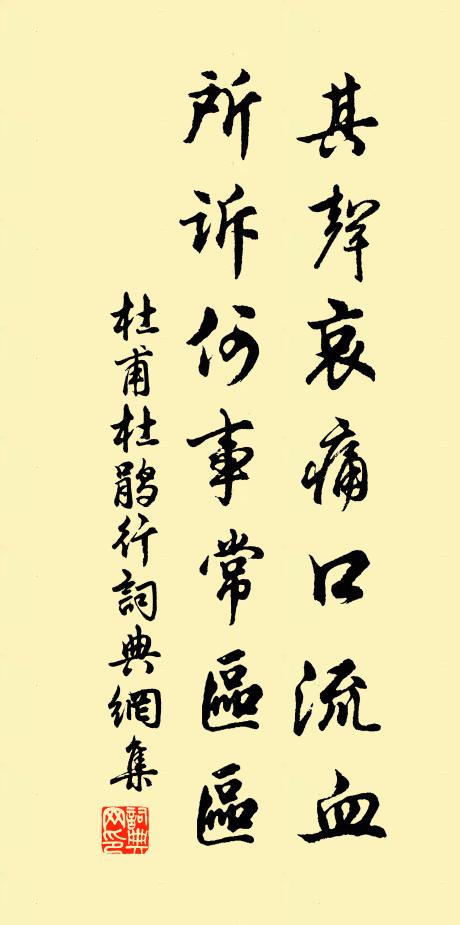 其聲哀痛口流血
所訴何事常區區
杜甫杜鹃行詞典網集
詞典
网印